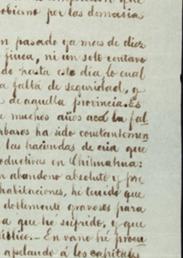 obierno por las demasia
n pasado ya mas de diez
finca, ni un solo centavo
do hasta este dia lo cual
a falta de seguridad, y
de aquella provincia. Es
muchos años acá la fal
rbaros ha sido constantemen
las haciendas de cria que
oductivas en Chihuahua:
n abandono absoluto y por
habitaciones, he tenido que
doblemente gravosos para
a que hé sufrido, y que
En vano hé procu
apelando á los capitales